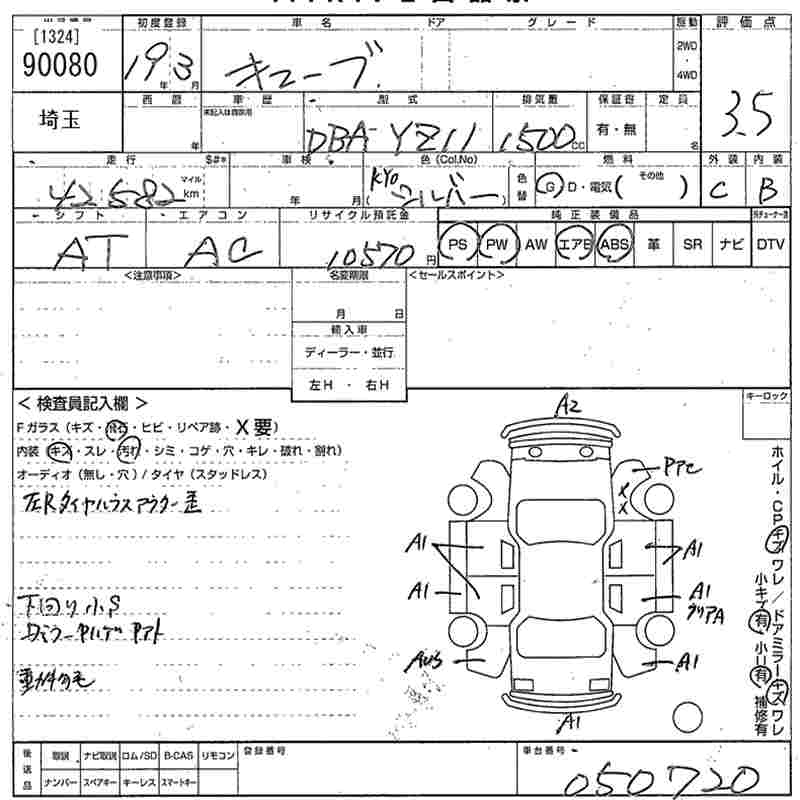 [1324]
90080
埼玉
初度登録
19年3月
車名
ドア
グレード
キューブ
駆動
2WD
・
4WD
評価点
3.5
西暦
年
車歴
未記入は自家用
型式
DBA-YZ11
排気量
1500cc
保証書
有・無
定員
名
走行
マイル
42582 km
S#*
車検
年 月
色(Col.No)
(KY0)
シルバー
色替
燃料
G D・電気(その他 )
外装
C
内装
B
シフト
AT
エアコン
AC
リサイクル預託金
10570円
純正装備品
PS PW AW エアB ABS 革 SR ナビ DTV
<注意事項>
名変期限
月 日
輸入車
ディーラー・並行
左H・右H
<セールスポイント>
<検査員記入欄>
Fガラス(キズ・飛石・ヒビ・リペア跡・X要)
内装(キズ・スレ・汚れ・シミ・コゲ・穴・キレ・破れ・割れ)
オーディオ(無し・穴)/タイヤ(スタッドレス)
左Rタイヤハウスアウター
下回り小S
キーロック
A2
A1
A1
A1
A1
A1
A1
ホイル・CPキズワレ/ドアミラーキズワレ
小キズ有 小U有 補修有
後送品
取説 ナビ取説 ロム/SD B-CAS リモコン
ナンバー スペアキー キーレス スマートキー
登録番号
車台番号
050720